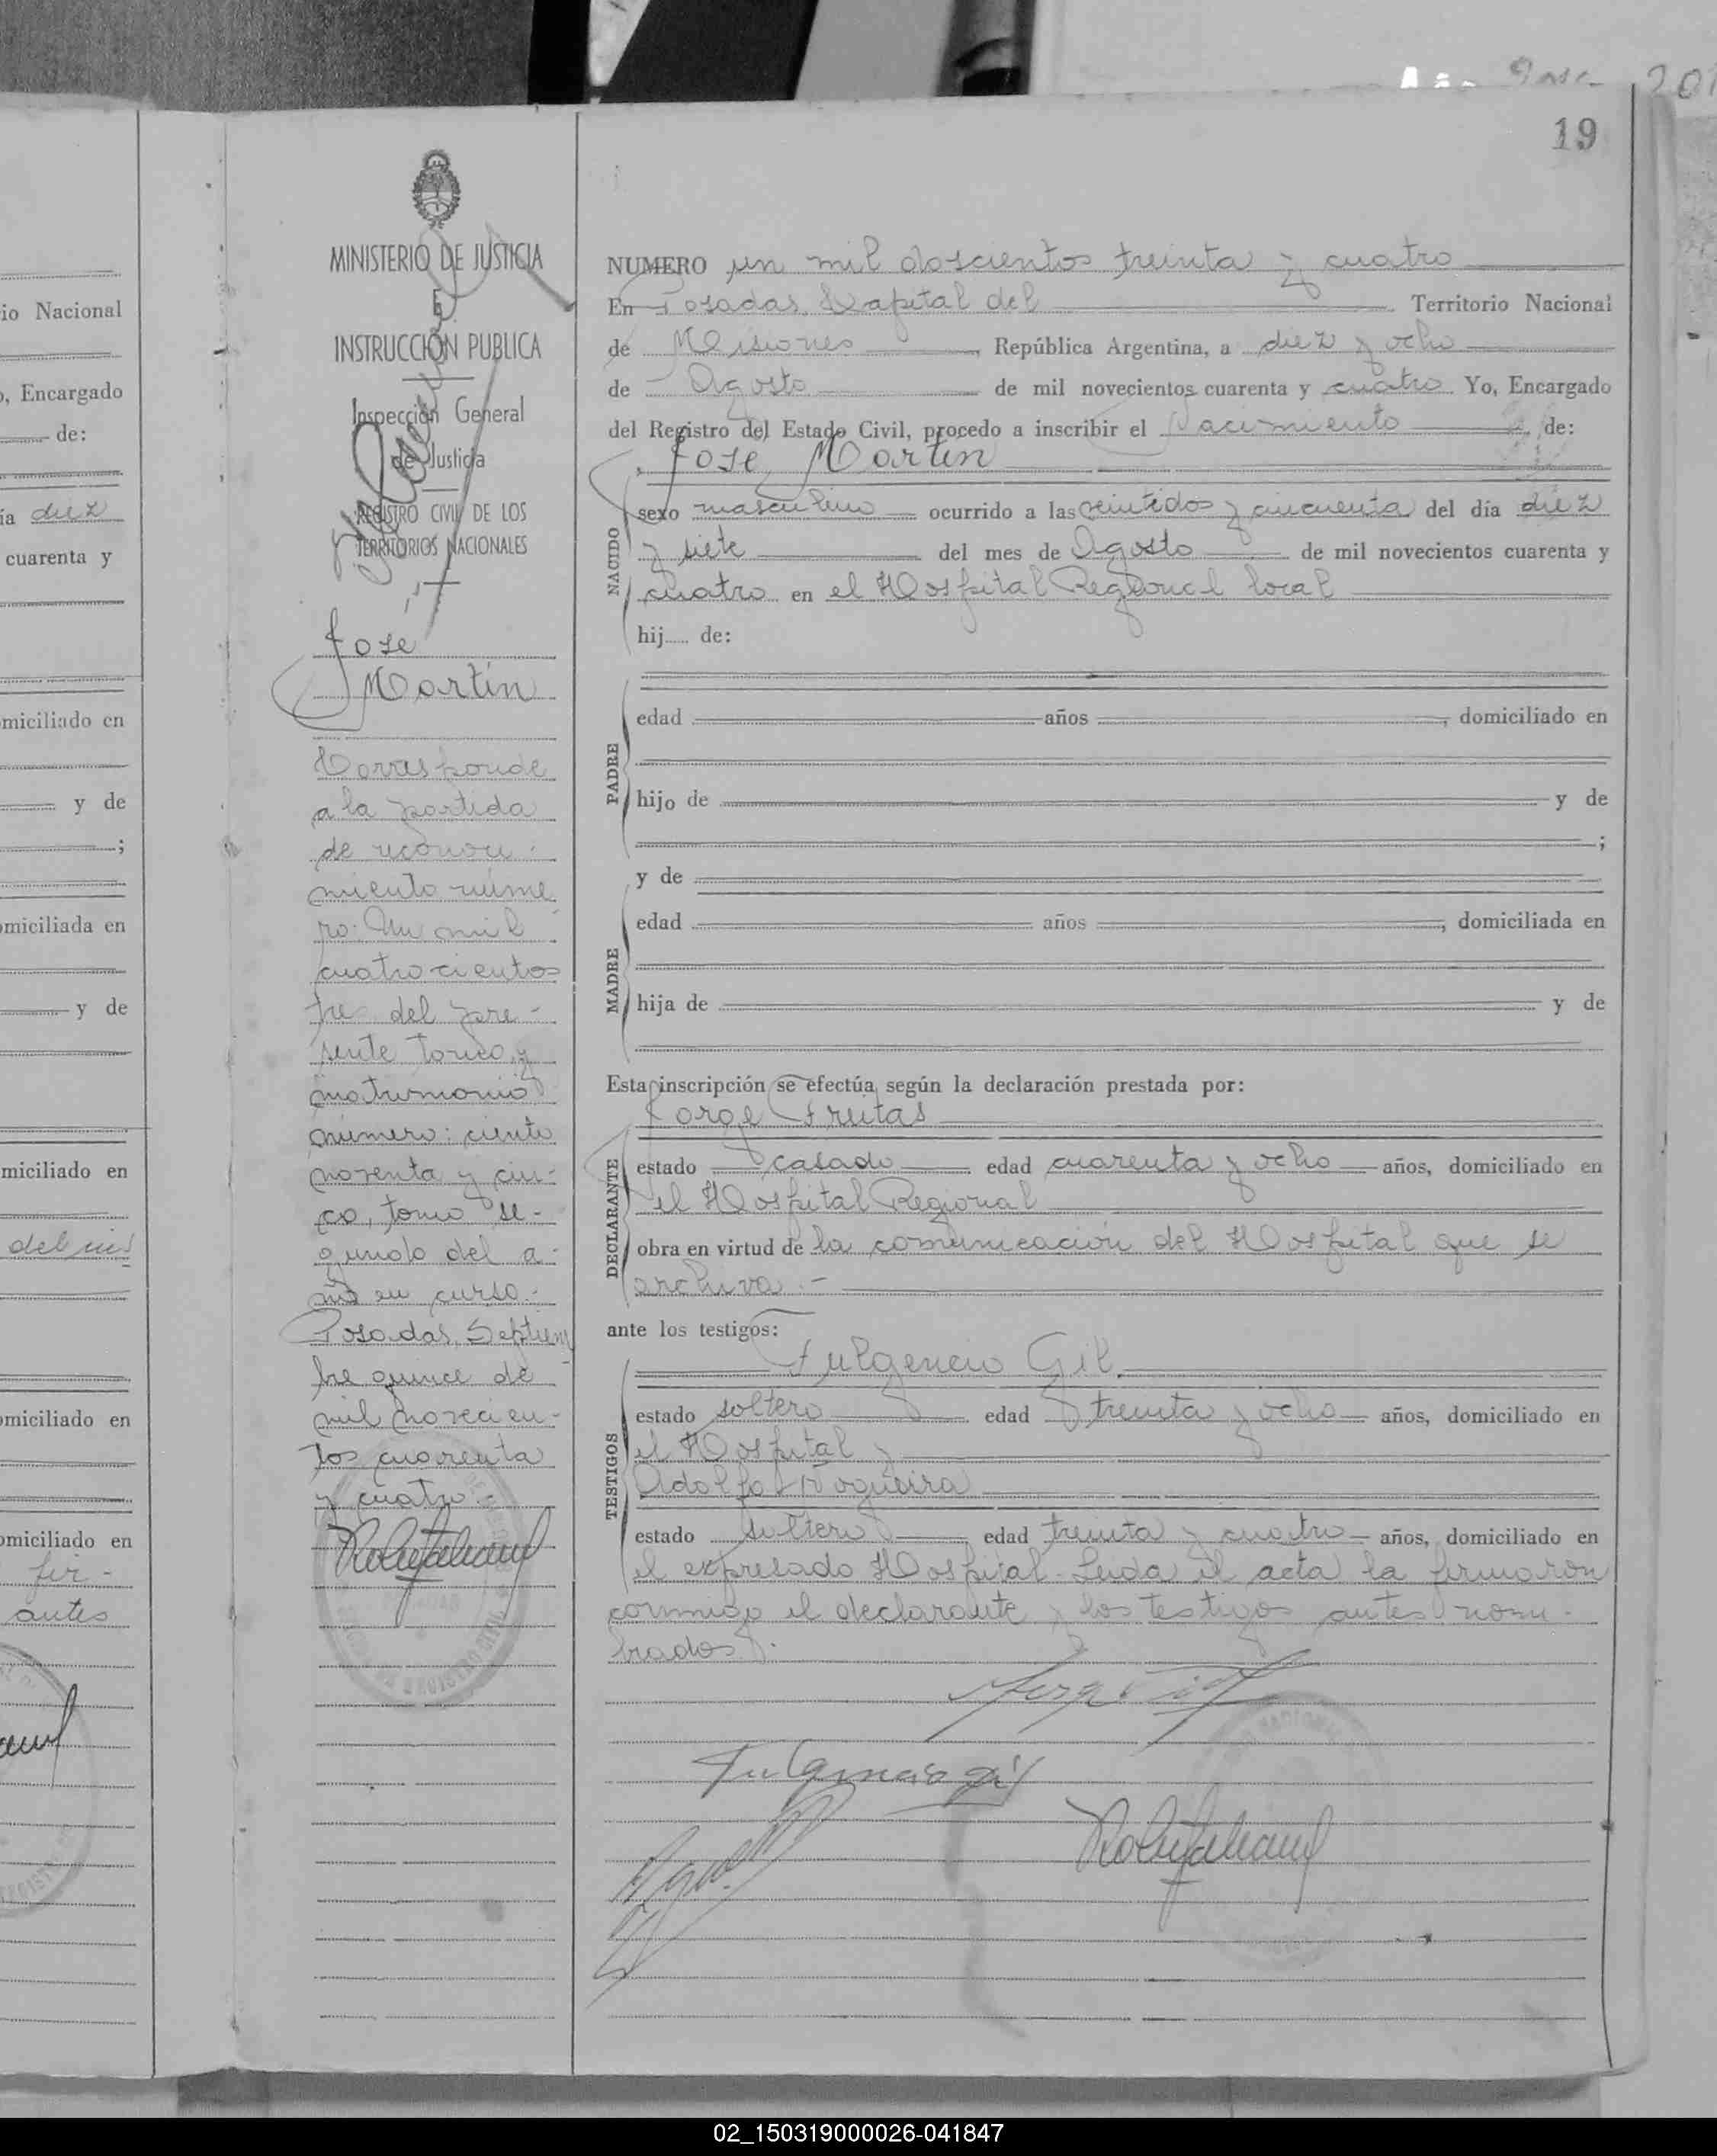 19
io Nacional
o, Encargado
de:
ía diez
cuarenta y
omiciliado en
y de
;
omiciliada en
y de
miciliado en
omiciliado en
omiciliado en
fir-
antes
MINISTERIO DE JUSTICIA
E
INSTRUCCIÓN PUBLICA
Inspección General
de Justicia
REGISTRO CIVIL DE LOS
TERRITORIOS NACIONALES
Jose
Martin
Corresponde
a la partida
de reconoci-
miento núme
ro: Un mil
cuatrocientos
tres del pre-
sente tomo y
matrimonio
número: ciento
noventa y cin-
co, tomo se-
gundo del a-
ño en curso.-
Posadas, Septiem
bre quince de
mil novecien-
tos cuarenta
y cuatro.-
NUMERO un mil doscientos treinta y cuatro
En Posadas, Capital del Territorio Nacional
de Misiones, República Argentina, a diez y ocho
de Agosto de mil novecientos cuarenta y cuatro Yo, Encargado
del Registro del Estado Civil, procedo a inscribir el Nacimiento de:
Jose Martin
NACIDO
sexo masculino ocurrido a las veintidos y cincuenta del día diez
y siete del mes de Agosto de mil novecientos cuarenta y
cuatro en el Hospital Regional local
hij..... de:
PADRE
edad años , domiciliado en
hijo de y de
;
y de
MADRE
edad años , domiciliada en
hija de y de
Esta inscripción se efectúa según la declaración prestada por:
Jorge Freitas
DECLARANTE
estado casado edad cuarenta y ocho años, domiciliado en
el Hospital Regional
obra en virtud de la comunicación del Hospital que se
archiva.-
ante los testigos:
Fulgencio Gil
TESTIGOS
estado soltero edad treinta y ocho años, domiciliado en
el Hospital y
Adolfo Nogueira
estado soltero edad treinta y cuatro años, domiciliado en
el expresado Hospital. Leida el acta la firmaron
conmigo el declarante y los testigos antes nom-
brados.
02_150319000026-041847